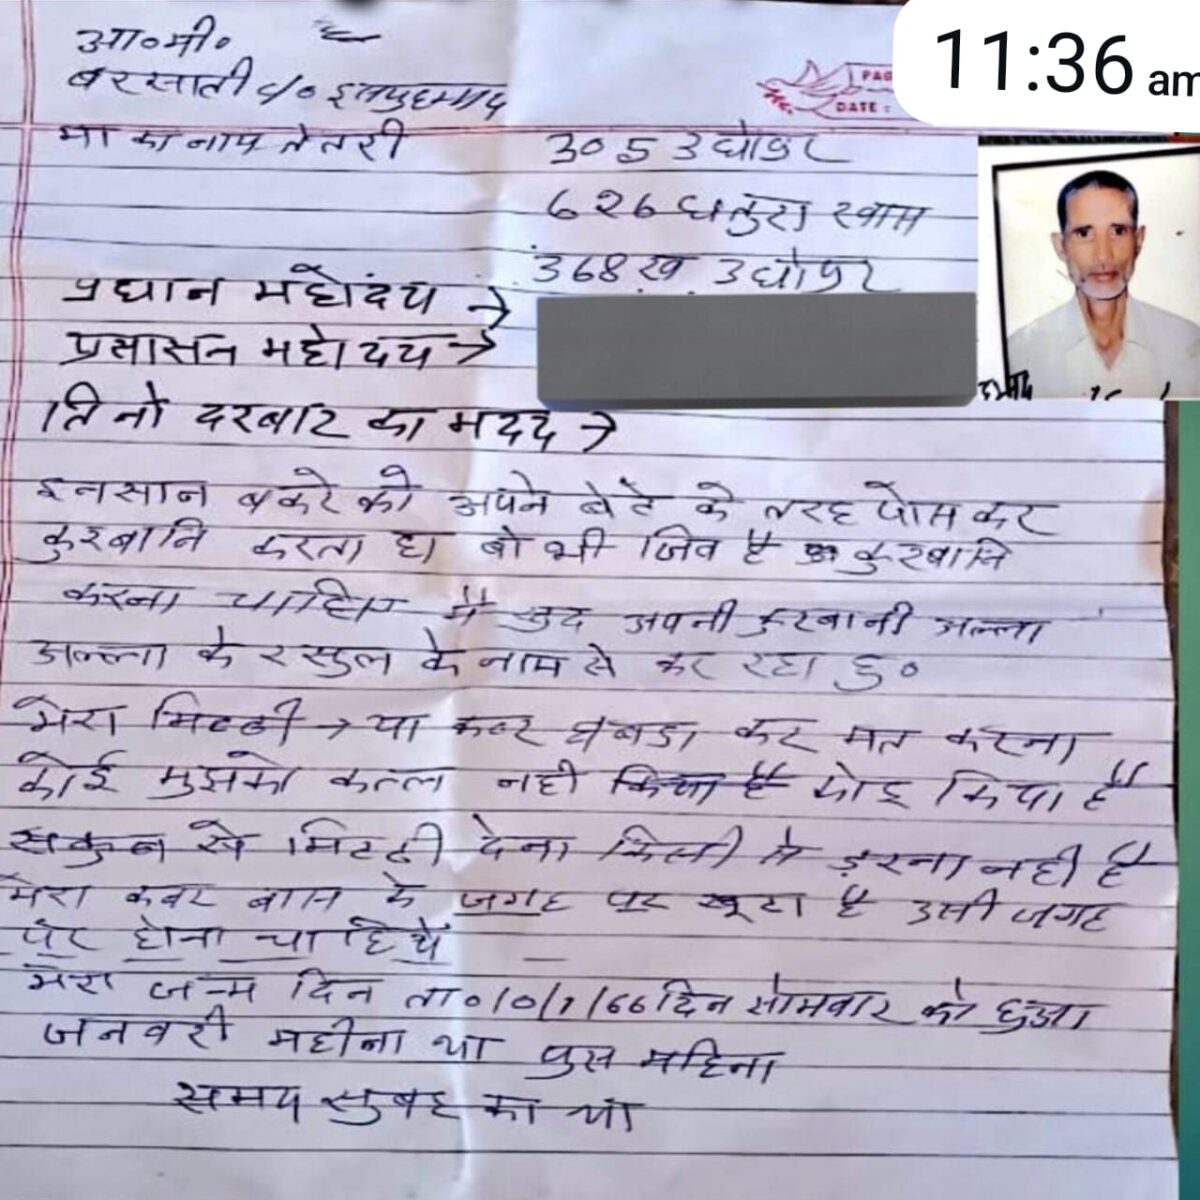 आ०मी०
बरसाती c/o इनमुहम्मद
PAG
DATE :
11:36 am
मा का नाम तेतरी
305 उधोपुर
626 धतुरा खास
368 ख उधोपुर
प्रधान महोदय →
प्रसासन महोदय →
तिनो दरबार का मदद →
इनसान बकरे को अपने बेटे के तरह पोस कर
कुरबानि करता हा वो भी जिव है कुरबानि
करना चाहिए मै खुद अपनी कुरबानी अल्ला
अल्ला के रसुल के नाम से कर रहा हु०
मेरा मिट्टी → या कबर घबडा कर मत करना
कोई मुझको कत्ल नही किया है कोइ किया है
सकुन से मिट्टी देना किसी से डरना नही है
मेरा कबर बास के जगह पर खूटा है उसी जगह
पर होना चाहिये
मेरा जन्म दिन ता० 10/1/66 दिन सोमवार को हुआ
जनवरी महीना था पुस महिना
समय सुबह का था